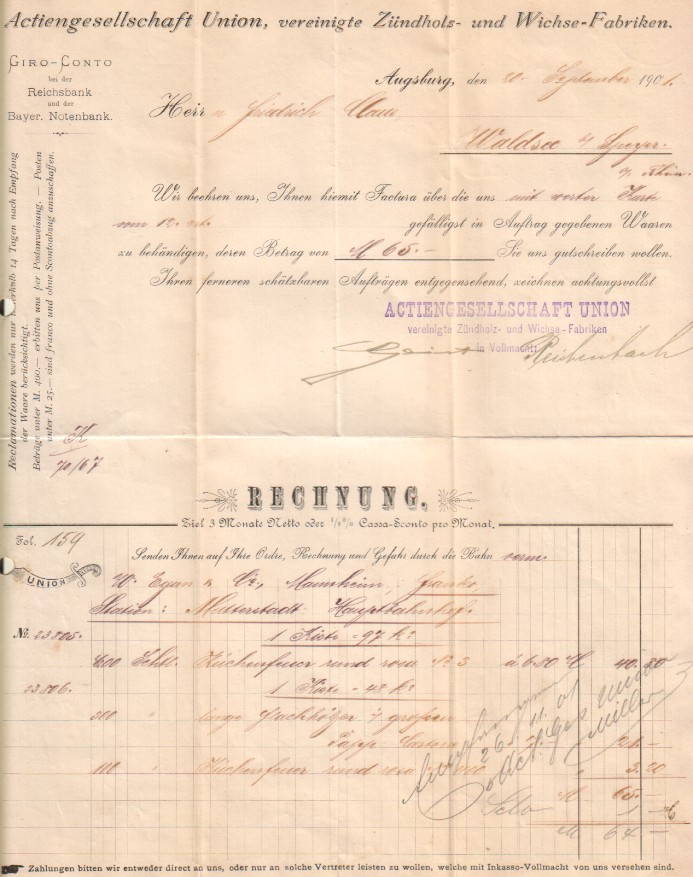 Actiengesellschaft Union, vereinigte Zündholz- und Wichse-Fabriken.
GIRO-CONTO
bei der
Reichsbank
und der
Bayer. Notenbank.
Augsburg, den 20. September 1901.
Herrn Friedrich
Waldsee b/ Speyer.
a/ Rhein.
Wir beehren uns, Ihnen hiemit Factura über die uns mit werter Karte
vom 12. ct. gefälligst in Auftrag gegebenen Waaren
zu behändigen, deren Betrag von M 65.- Sie uns gutschreiben wollen.
Ihren ferneren schätzbaren Aufträgen entgegensehend, zeichnen achtungsvollst
ACTIENGESELLSCHAFT UNION
vereinigte Zündholz- und Wichse-Fabriken
in Vollmacht:
Reclamationen werden nur innerhalb 14 Tagen nach Empfang
der Waare berücksichtigt.
Beträge unter M. 400.— erbitten uns per Postanweisung. — Posten
unter M. 25.— sind franco und ohne Scontoabzug anzuschaffen.
K
70/67
RECHNUNG.
Ziel 3 Monate Netto oder ½% Cassa-Sconto pro Monat.
Fol. 159
Senden Ihnen auf Ihre Ordre, Rechnung und Gefahr durch die Bahn
UNION
Mannheim, franko
Station: Mutterstadt Hauptbahnhof.
No. 23805. 1 Kiste = 97 k°
600 Schtl. Küchenfeuer rund rosa No 3 à 6.80 M 40.80
23806. 1 Kiste = 48 k°
300 " lange
Papp Cartons 21.-
100 " Küchenfeuer rund rosa 3.20
M 65.-
Scto 1.-
M 64.-
Empfangen
26.11.01
Act. Ges. Union
Müller
Zahlungen bitten wir entweder direct an uns, oder nur an solche Vertreter leisten zu wollen, welche mit Inkasso-Vollmacht von uns versehen sind.